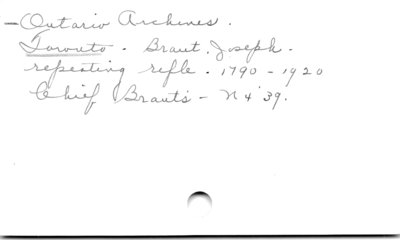 - Ontario Archives.
Toronto - Brant, Joseph -
repeating rifle - 1790 - 1920
Chief Brant's - N 4 '39.